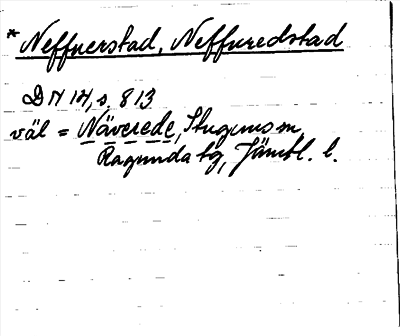 * Neffnerstad, Neffnredstad
DN 14, s. 813
väl = Näverede, Stuguns sn,
Ragunda tg, Jämtl. l.